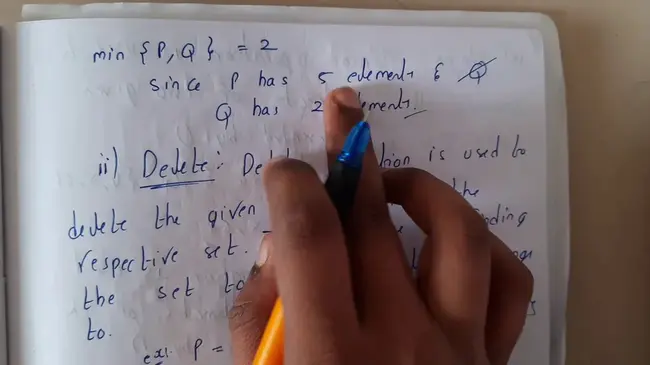 min {P, Q} = 2
since P has 5 elements &
Q has 2 elements.
ii) Delete: is used to
delete the given the
respective set.
the set to
to.
ex:- P =